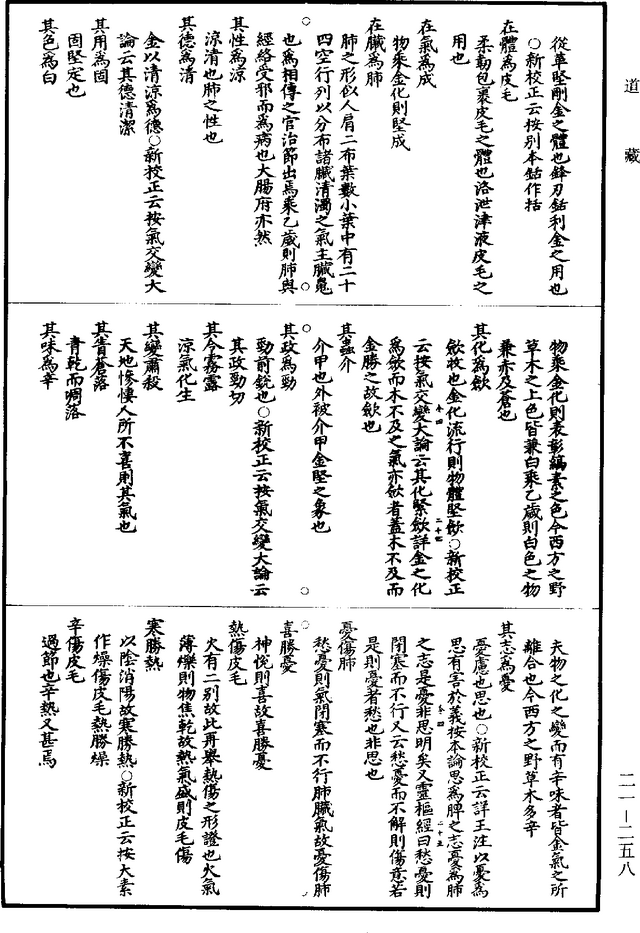 道藏
從革堅剛金之體也鋒刃銛利金之用也
○新校正云按別本銛作括
在體為皮毛
柔韌包裹皮毛之體也洛泄津液皮毛之
用也
在氣為成
物乘金化則堅成
在臟為肺
肺之形似人肩二布葉數小葉中有二十
四空行列以分布諸臟清濁之氣主臟䰟
也為相傳之官治節出焉乘乙歲則肺與
經絡受邪而為病也大腸府亦然
其性為涼
涼清也肺之性也
其德為清
金以清涼為德○新校正云按氣交變大
論云其德清潔
其用為固
固堅定也
其色為白
物乘金化則表彰縞素之色今西方之野
草木之上色皆兼白乘乙歲則白色之物
兼赤及蒼也
其化為斂
斂收也金化流行則物體堅斂○新校正
云按氣交變大論云其化緊斂詳金之化
為斂而木不及之氣亦斂者蓋木不及而
金勝之故斂也
其蟲介
介甲也外被介甲金堅之象也
其政為勁
勁前銳也○新校正云按氣交變大論云
其政勁切
其令霧露
涼氣化生
其變肅殺
天地慘悽人所不喜則其氣也
其眚蒼落
青乾而凋落
其味為辛
夫物之化之變而有辛味者皆金氣之所
離合也今西方之野草木多辛
其志為憂
憂慮也思也○新校正云詳王注以憂為
思有害於義按本論思為脾之志憂為肺
之志是憂非思明矣又靈樞經曰愁憂則
閉塞而不行又云愁憂而不解則傷意若
是則憂者愁也非思也
憂傷肺
愁憂則氣閉塞而不行肺臟氣故憂傷肺
喜勝憂
神悅則喜故喜勝憂
熱傷皮毛
火有二別故此再舉熱傷之形證也火氣
薄爍則物焦乾故熱氣盛則皮毛傷
寒勝熱
以陰消陽故寒勝熱○新校正云按大素
作燥傷皮毛熱勝燥
辛傷皮毛
過節也辛熱又甚焉
二一—二五八